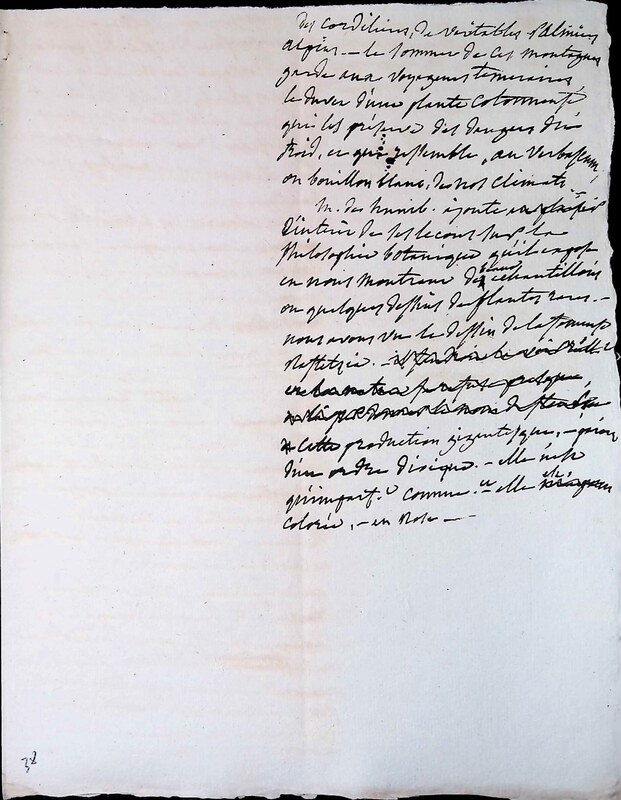 des cordilieres, de veritables Palmiers
alpins. — le sommet de ces montagnes
garde aux voyageurs temeraires
le duvet d'une plante cotonneuse
qui les préserve des dangers du
froid, ce qui ressemble, au Verbascum,
ou bouillon blanc, de nos climats. —
M. de humb. ajoute
l'interet de ses lecons sur la
philosophie botanique qu'il expose
en nous montrant des echantillons
ou quelques dessins de plantes rares. —
nous avons vu le dessin de la fameuse
Rafflezia. —
cette production gigantesque, —
d'un ordre dioique. — elle n'est
qu'imparf.t connue. — elle
colorée, — en Rose —
38